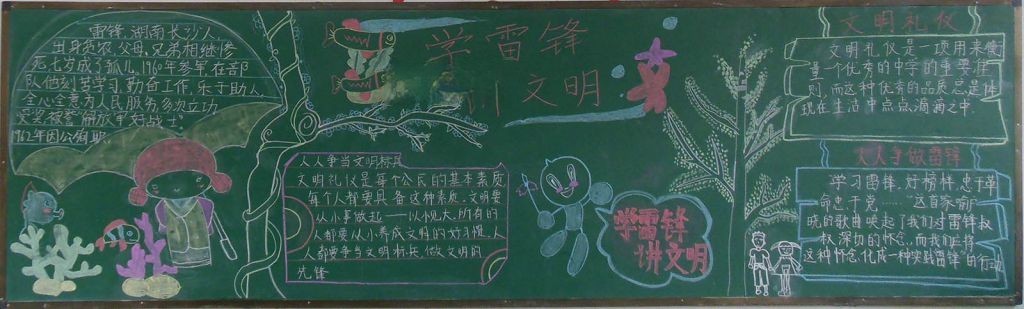 雷锋,湖南长沙人,
出身贫农,父母,兄弟相继惨
死七岁成了孤儿,1960年参军,在部
队他刻苦学习,勤奋工作,乐于助人,
全心全意为人民服务多次立功
受奖被誉"解放军好战士"
1962年因公殉职
学雷锋
文明
人人争当文明标兵
文明礼仪是每个公民的基本素质
每个人都要具备这种素质,文明要
从小事做起——以悦大,所有的
人都要从小养成文明的好习惯,人
人都要争当文明标兵,做文明的
先锋
学雷锋
讲文明
文明礼仪
文明礼仪是一项用来衡
量一个优秀的中学的重要准
则,而这种优秀的品质总是体
现在生活中点点滴滴之中.
人人争做雷锋
学习雷锋,好榜样,忠于革
命忠于党……"这首家喻
晓的歌曲唤起了我们对雷锋叔
叔深切的怀念,而我们应将
这种怀念,化成一种实践雷锋的行动